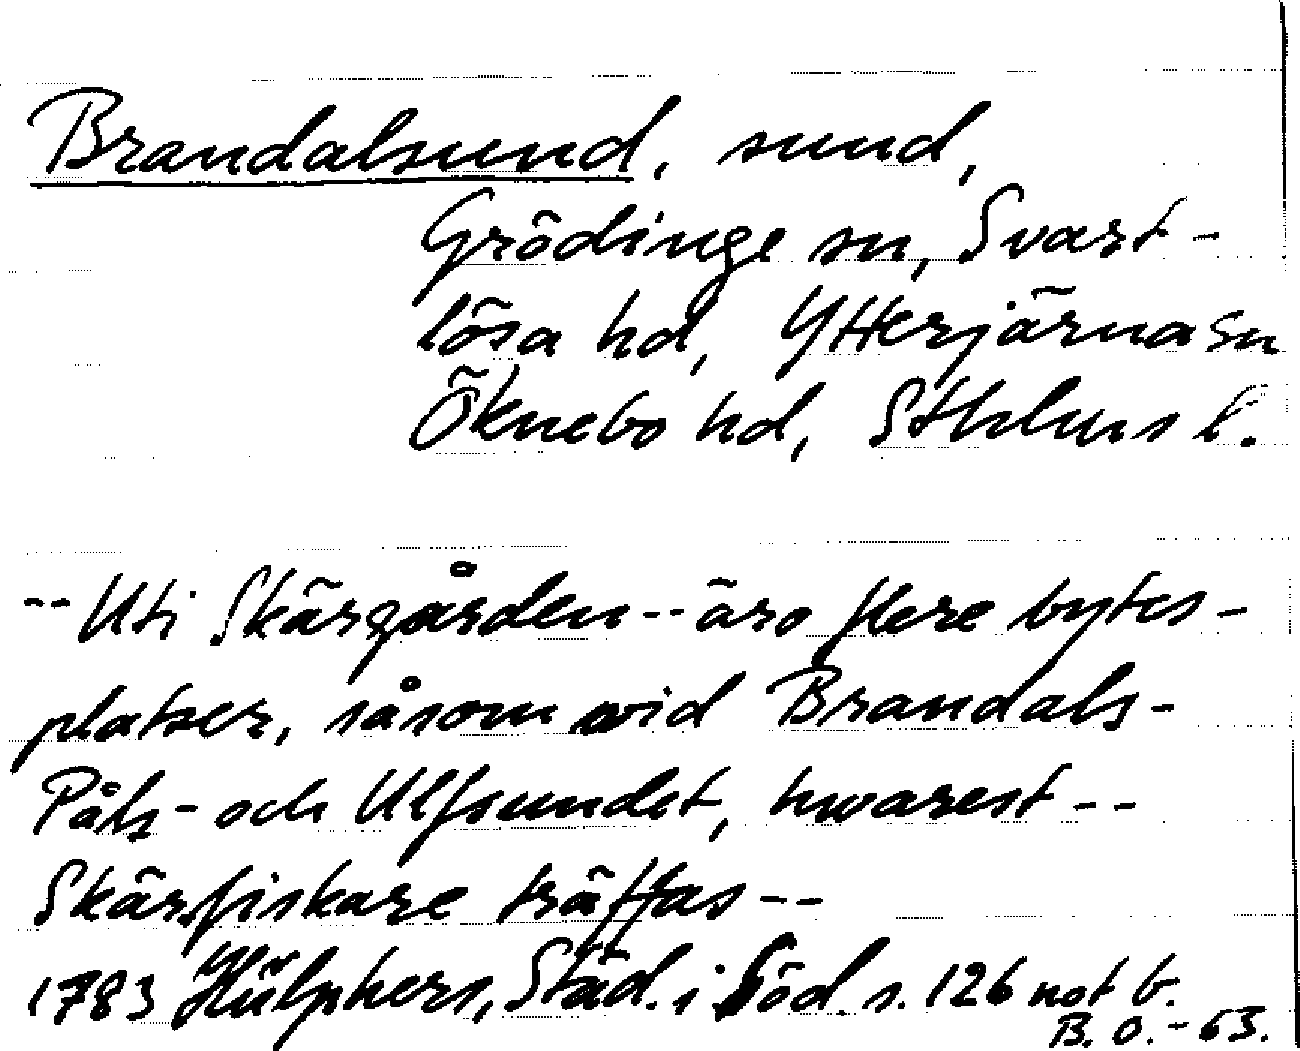 Brandalsund, sund,
Grödinge sn, Svart-
lösa hd, Ytterjärna sn
Öknebo hd, Sthlms l.
-- Uti Skärgården -- äro flere bytes-
platser, såsom wid Brandals-
Påls- och Ulfsundet, hwarest --
Skärfiskare träffas --
1783 Hülphers, Städ. i Söd. s. 126 not b.
B. O. - 63.